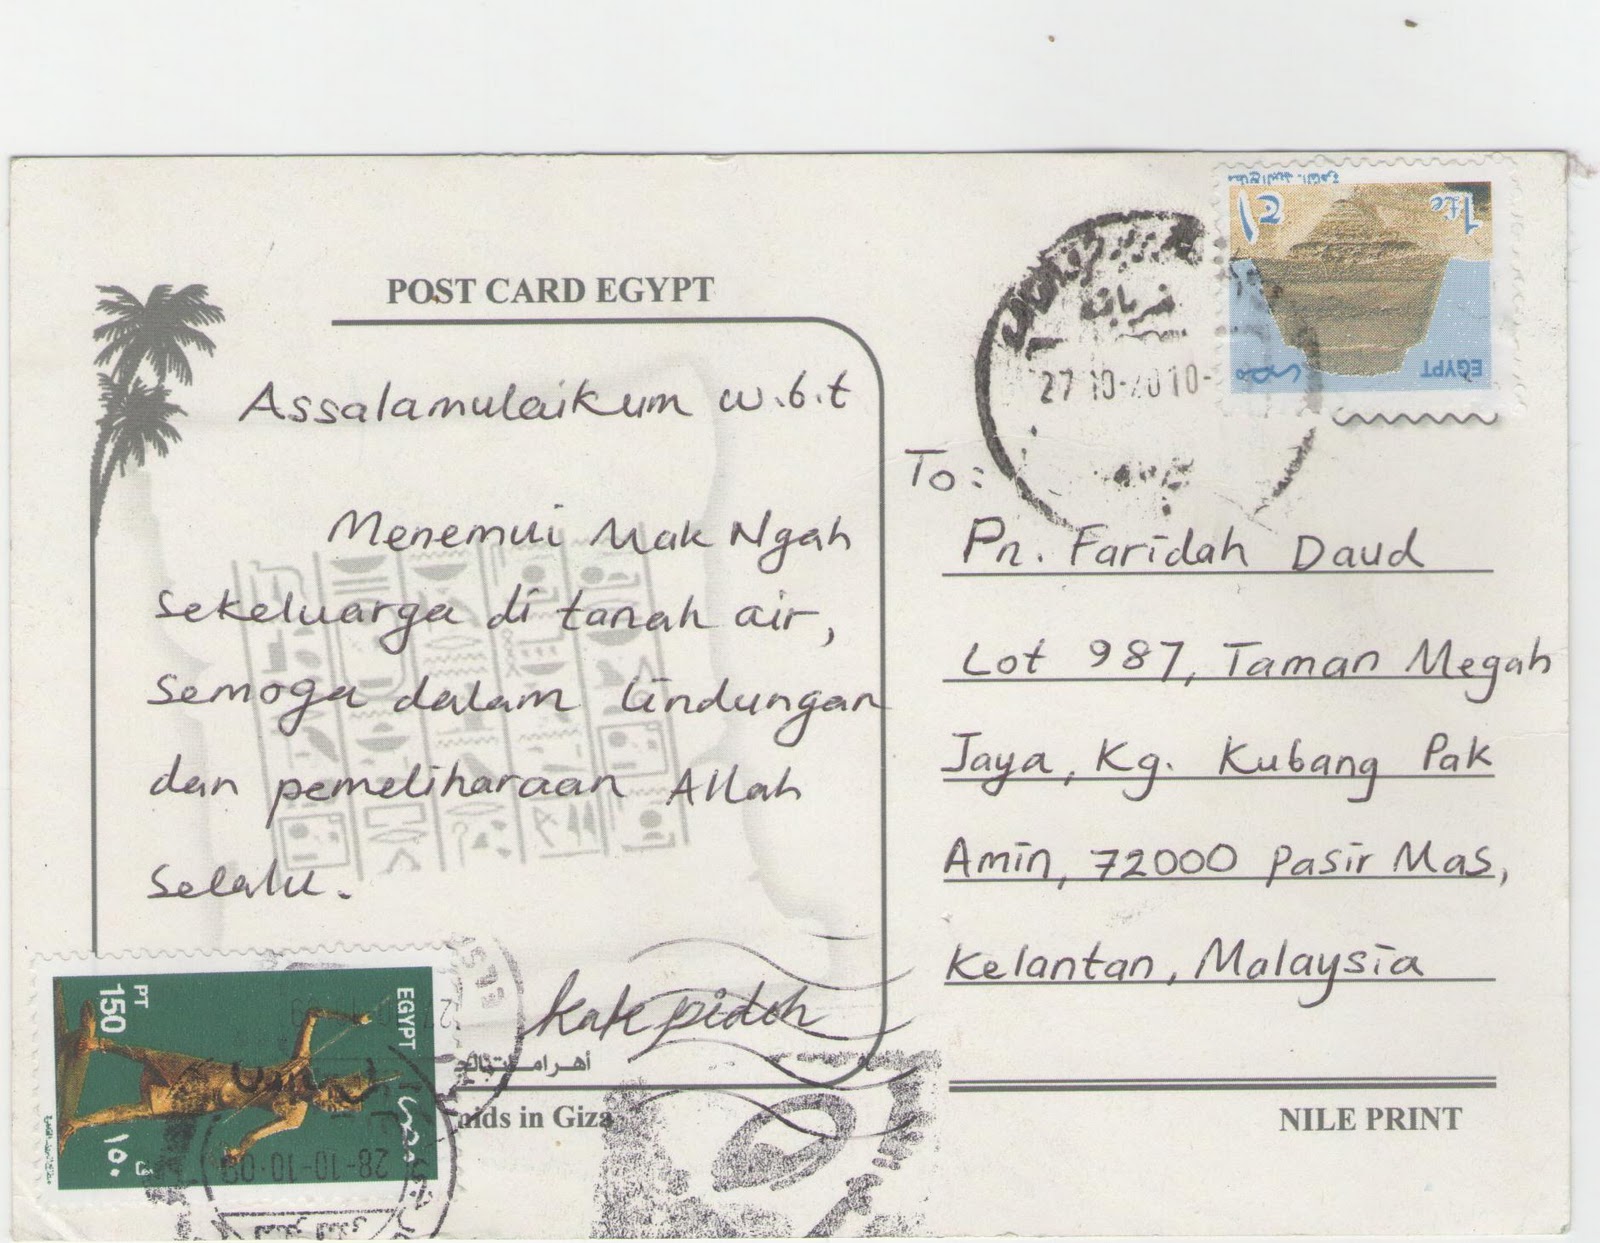 POST CARD EGYPT
Assalamulaikum w.b.t
Menemui Mak Ngah
sekeluarga di tanah air,
semoga dalam lindungan
dan pemeliharaan Allah
selalu.
kak pidoh
nids in Giza
EGYPT
PT
150
مصر
١٥٠
28-10-10-09
27 10-2010-
EGYPT
مصر
1 £e
To:
Pn. Faridah Daud
Lot 987, Taman Megah
Jaya, Kg. Kubang Pak
Amin, 72000 Pasir Mas,
Kelantan, Malaysia
NILE PRINT